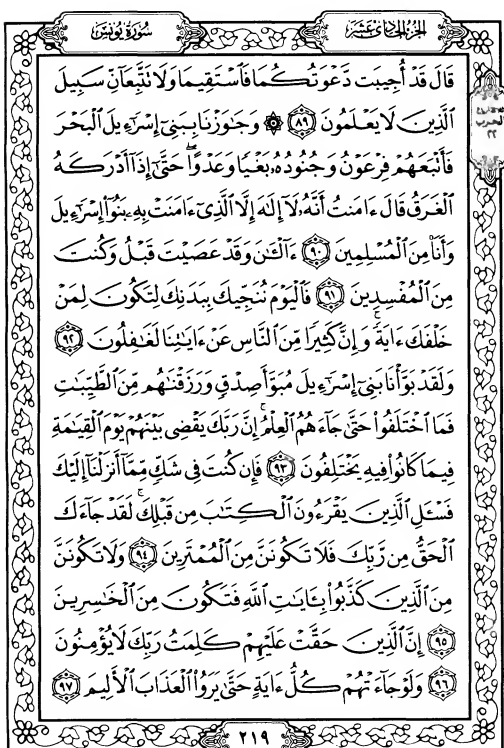 الجزء الحادى عشر
سورة يونس
قَالَ قَدْ أُجِيبَت دَّعْوَتُكُمَا فَٱسْتَقِيمَا وَلَا تَتَّبِعَآنِّ سَبِيلَ
ٱلَّذِينَ لَا يَعْلَمُونَ ٨٩ ۞ وَجَٰوَزْنَا بِبَنِىٓ إِسْرَٰٓءِيلَ ٱلْبَحْرَ
فَأَتْبَعَهُمْ فِرْعَوْنُ وَجُنُودُهُۥ بَغْيًا وَعَدْوًا ۖ حَتَّىٰٓ إِذَآ أَدْرَكَهُ
ٱلْغَرَقُ قَالَ ءَامَنتُ أَنَّهُۥ لَآ إِلَٰهَ إِلَّا ٱلَّذِىٓ ءَامَنَتْ بِهِۦ بَنُوٓا۟ إِسْرَٰٓءِيلَ
وَأَنَا۠ مِنَ ٱلْمُسْلِمِينَ ٩٠ ءَآلْـَٰٔنَ وَقَدْ عَصَيْتَ قَبْلُ وَكُنتَ
مِنَ ٱلْمُفْسِدِينَ ٩١ فَٱلْيَوْمَ نُنَجِّيكَ بِبَدَنِكَ لِتَكُونَ لِمَنْ
خَلْفَكَ ءَايَةً ۚ وَإِنَّ كَثِيرًا مِّنَ ٱلنَّاسِ عَنْ ءَايَٰتِنَا لَغَٰفِلُونَ ٩٢
وَلَقَدْ بَوَّأْنَا بَنِىٓ إِسْرَٰٓءِيلَ مُبَوَّأَ صِدْقٍ وَرَزَقْنَٰهُم مِّنَ ٱلطَّيِّبَٰتِ
فَمَا ٱخْتَلَفُوا۟ حَتَّىٰ جَآءَهُمُ ٱلْعِلْمُ ۚ إِنَّ رَبَّكَ يَقْضِى بَيْنَهُمْ يَوْمَ ٱلْقِيَٰمَةِ
فِيمَا كَانُوا۟ فِيهِ يَخْتَلِفُونَ ٩٣ فَإِن كُنتَ فِى شَكٍّ مِّمَّآ أَنزَلْنَآ إِلَيْكَ
فَسْـَٔلِ ٱلَّذِينَ يَقْرَءُونَ ٱلْكِتَٰبَ مِن قَبْلِكَ ۚ لَقَدْ جَآءَكَ
ٱلْحَقُّ مِن رَّبِّكَ فَلَا تَكُونَنَّ مِنَ ٱلْمُمْتَرِينَ ٩٤ وَلَا تَكُونَنَّ
مِنَ ٱلَّذِينَ كَذَّبُوا۟ بِـَٔايَٰتِ ٱللَّهِ فَتَكُونَ مِنَ ٱلْخَٰسِرِينَ
٩٥ إِنَّ ٱلَّذِينَ حَقَّتْ عَلَيْهِمْ كَلِمَتُ رَبِّكَ لَا يُؤْمِنُونَ
٩٦ وَلَوْ جَآءَتْهُمْ كُلُّ ءَايَةٍ حَتَّىٰ يَرَوُا۟ ٱلْعَذَابَ ٱلْأَلِيمَ ٩٧
الحزب
٢٢
٢١٩